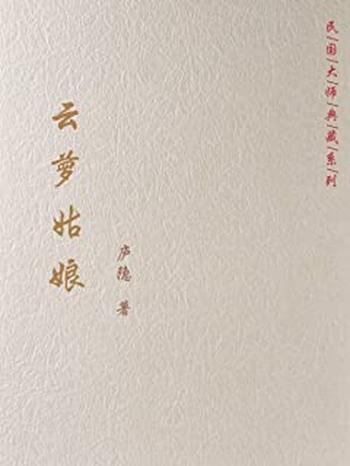 民国大师典藏系列
云萝姑娘
庐隐 著